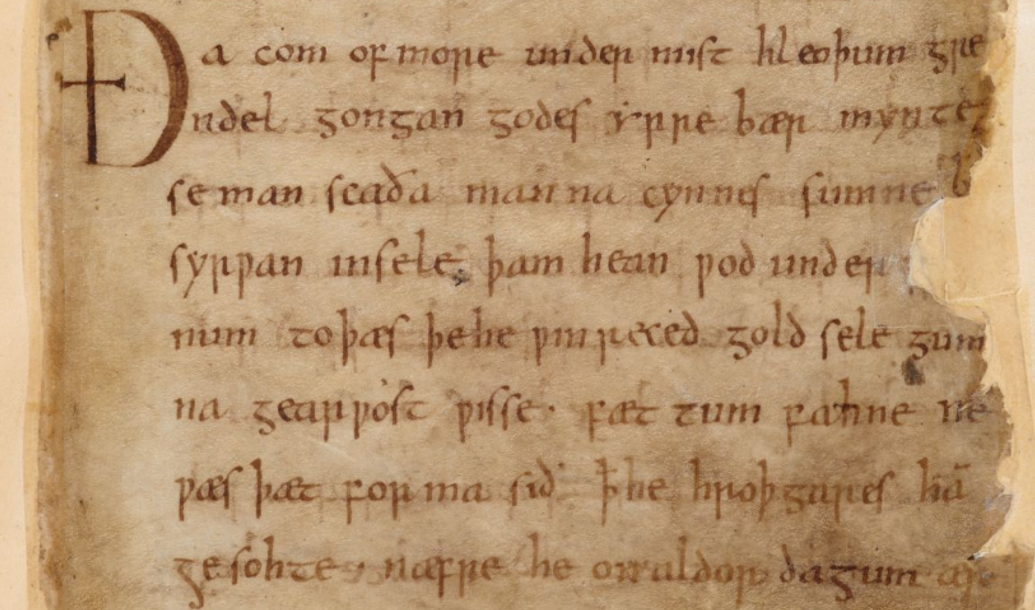 Ða com of more under mist hleoþum gre
ndel gongan godes yrre bær mynte
se man scaða manna cynnes sumne b
syrwan in sele þam hean wod under
num to þæs þe he win reced gold sele gum
na gearwost wisse. fæt tum fahne ne
wæs þæt forma sið þ̄ he hroþgares hā
gesohte næfre he on aldor dagum ær